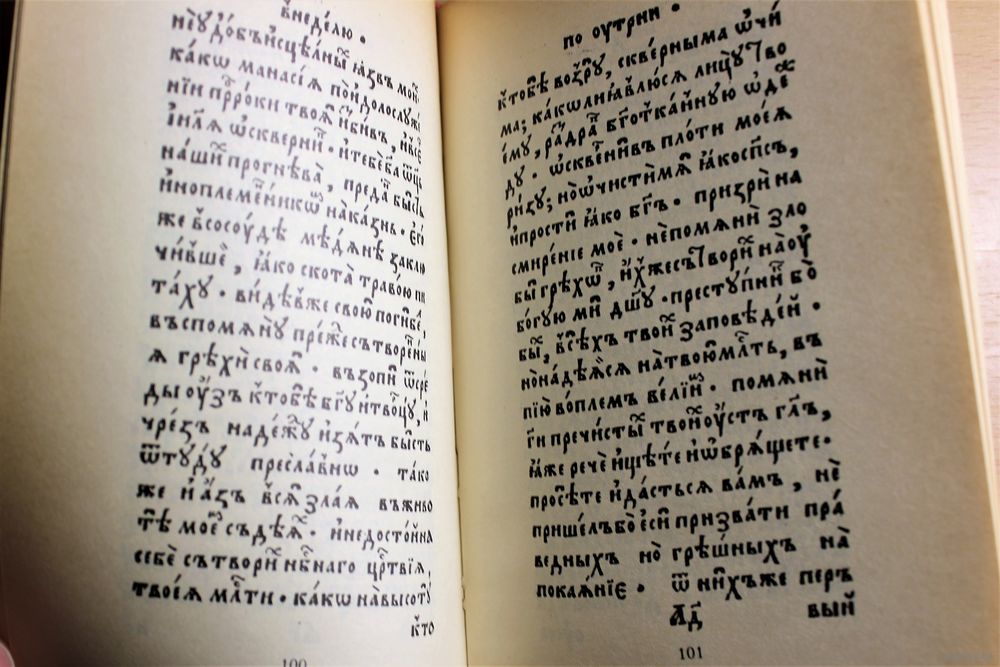 в҃неде́лю ·
не҆удо́бьисце́лны́ ꙗ҆́звъ мои҆х
ка́кѡ манасі́ꙗ по́и҆долослуже́
нїи прⷪ҇ро́ки твоѧ̑ и҆зби́въ, и҆всѐ
і҆и҃лѧ ѡ҆скверни́ · и҆тебѐ бг҃а ѿц҃ъ
на́ши прогнѣ́ва, пре́данъ бы́сть
и҆ноплеме́нникѡⷨ на́казнь · є҆го́
же в҆сосоу́дѣ мѣ́дѧнѣ заклю
чи́вше, ꙗ҆́ко скота̀ траво́ю пи
та́ху · ви́дѣвже свою̀ поги́бѣль,
въспомѧнꙋ́ пре́жⷣе сътворе́нны
ѧ грѣхѝ своѧ̑ · възопи́ ѿсре
ды ᲂу҆́зъ к҆тобѣ̀ бг҃у и҆творцꙋ̀, и҆
чре́зъ наде́ждꙋ и҆зѧ́тъ бы́сть
ѿтꙋ́дꙋ пресла́внѡ · та́ко
же и҆ а҆́зъ всѧ̑ зла́ѧ въживо
тѣ̀ мое́мъ съдѣ́ѧⷯ · и҆недосто́йна
себѐ сътвори́хъ нбⷭ҇наго црⷭ҇твїѧ,
твоеѧ̀ млⷭ҇ти · ка́кѡ на́высотꙋ̀
к҆то
100
по оутрни ·
к҆тобѣ̀ воззрю̀, скве́рныма ѡ҆чи́
ма; ка́кѡли ꙗ҆влю́сѧ лицꙋ̀ тво
емꙋ̀, раздра́въ бг҃отка́ннꙋю ѡ҆де́ж
дꙋ · ѡ҆скве́рнивъ пло́ти моеѧ̀
ри́зꙋ; но̀ ѡ҆чи́сти мѧ̀ ꙗ҆́ко сп҃съ,
и҆простѝ ꙗ҆́ко бг҃ъ · при́зри на
смире́нїе моѐ · нѐпомѧнѝ зло
бы̀ грѣхѡ́въ, и҆́хже сътвори́хъ на̀ᲂу҆
бо́гꙋю мѝ дш҃ꙋ · престꙋпи́хъ бо̀
бы̀, в҆сѣ́хъ твои́хъ за́повѣ́дей ·
но̀надѣ́ѧсѧ на̀твою̀ млⷭ҇ть, въ
пїю̀ во́племъ ве́лїимъ · помѧнѝ
гⷭ҇и пречи́стыхъ твои́хъ ᲂу҆́стъ гл҃ъ,
ꙗ҆́же речѐ и҆щѣ́те и҆ѡ҆брѧ́щете ·
просѣ́те и҆да́стьсѧ ва́мъ, нѐ
пришéлъбо̀ є҆сѝ призва́ти пра́
ведныхъ но̀ грѣ́шныхъ на̀
покаѧ́нїе · ѿ ни́хъже перъ
а҃д вый
101